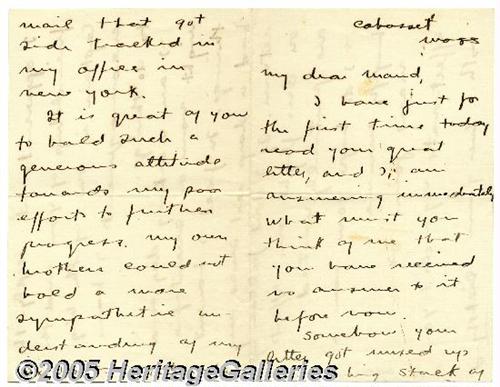 cohasset
mass
my dear maud,
I have just for
the first time today
read your great
letter, and I am
answering immediately
what must you
think of me that
you have received
no answer to it
before now.
Somehow your
letter got mixed up
big stack of
mail that got
side tracked in
my office in
new york.
It is great of you
to hold such a
generous attitude
towards my poor
efforts to further
progress. my own
brothers could not
hold a more
sympathetic un-
derstanding of my
©2005 HeritageGalleries